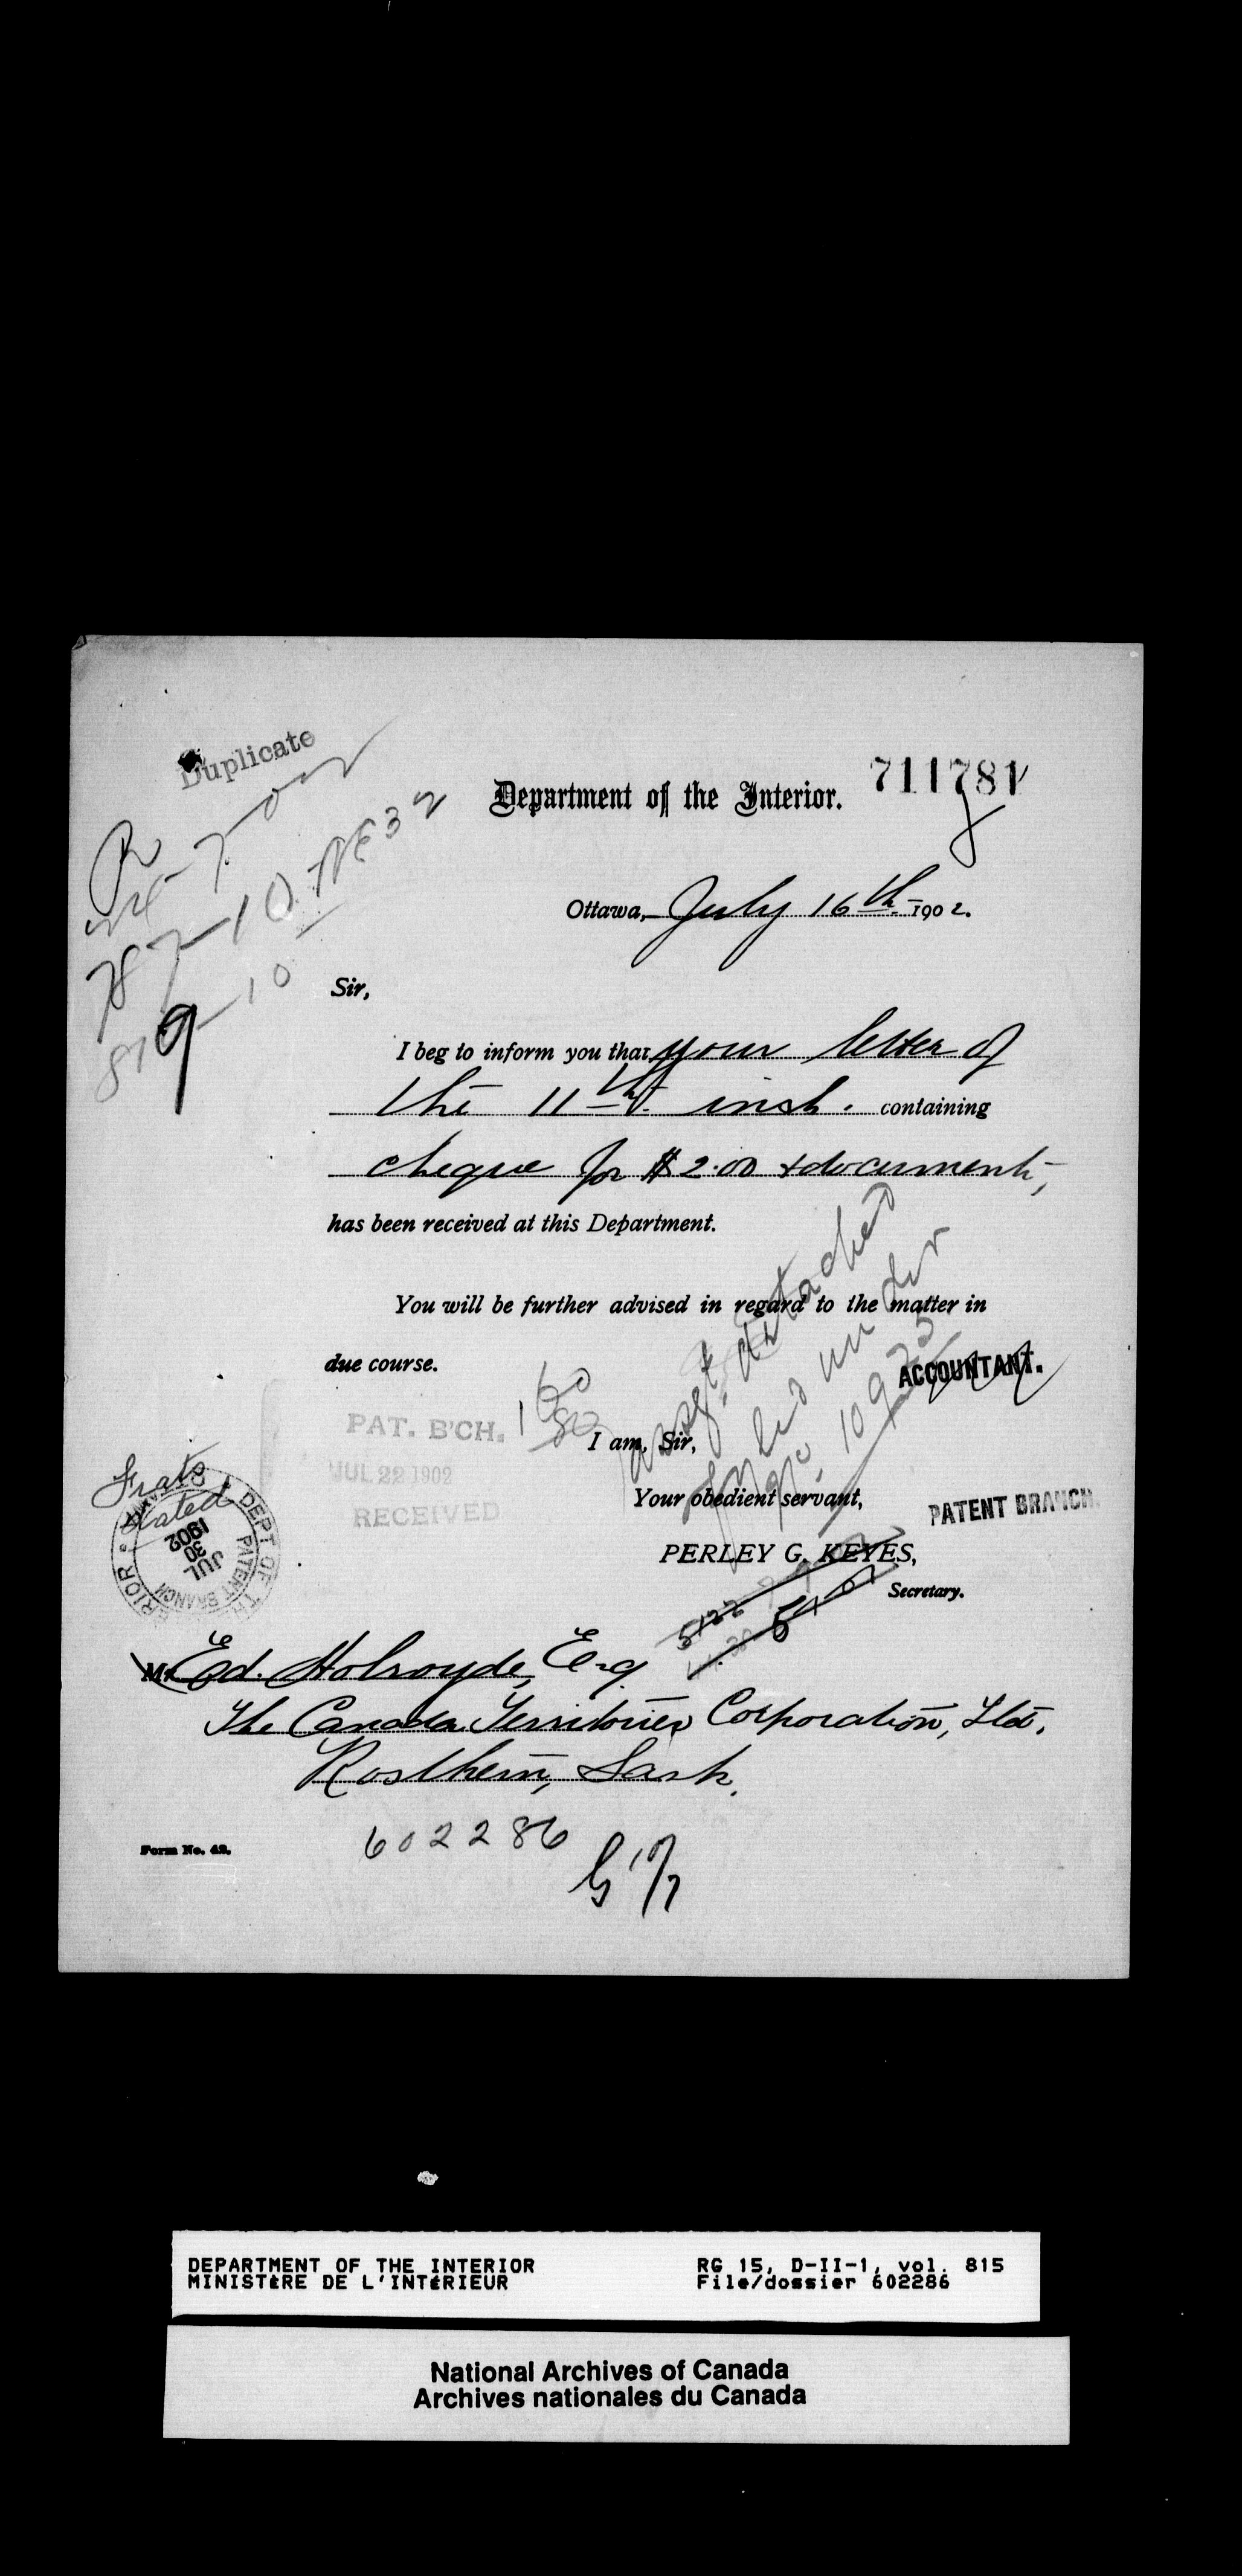 Duplicate
Department of the Interior.
711781
Ottawa, July 16th 1902.
NE 32
10
Sir,
I beg to inform you that your letter of
the 11th inst. containing
cheque for $2.00 & documents,
has been received at this Department.
You will be further advised in regard to the matter in
due course.
ACCOUNTANT.
assgt. detached
filed under
No. 10925
PAT. B'CH.
JUL 22 1902
RECEIVED
I am, Sir,
Your obedient servant,
PATENT BRANCH.
PERLEY G. KEYES,
Secretary.
stated
DEPT OF
PATENT BRANCH
JUL
30
1902
Mr Ed. Holroyde, Esq
The Canada Territories Corporation, Ltd.
Rosthern, Sask.
Form No. 42.
602286
DEPARTMENT OF THE INTERIOR
MINISTÈRE DE L'INTÉRIEUR
RG 15, D-II-1, vol. 815
File/dossier 602286
National Archives of Canada
Archives nationales du Canada